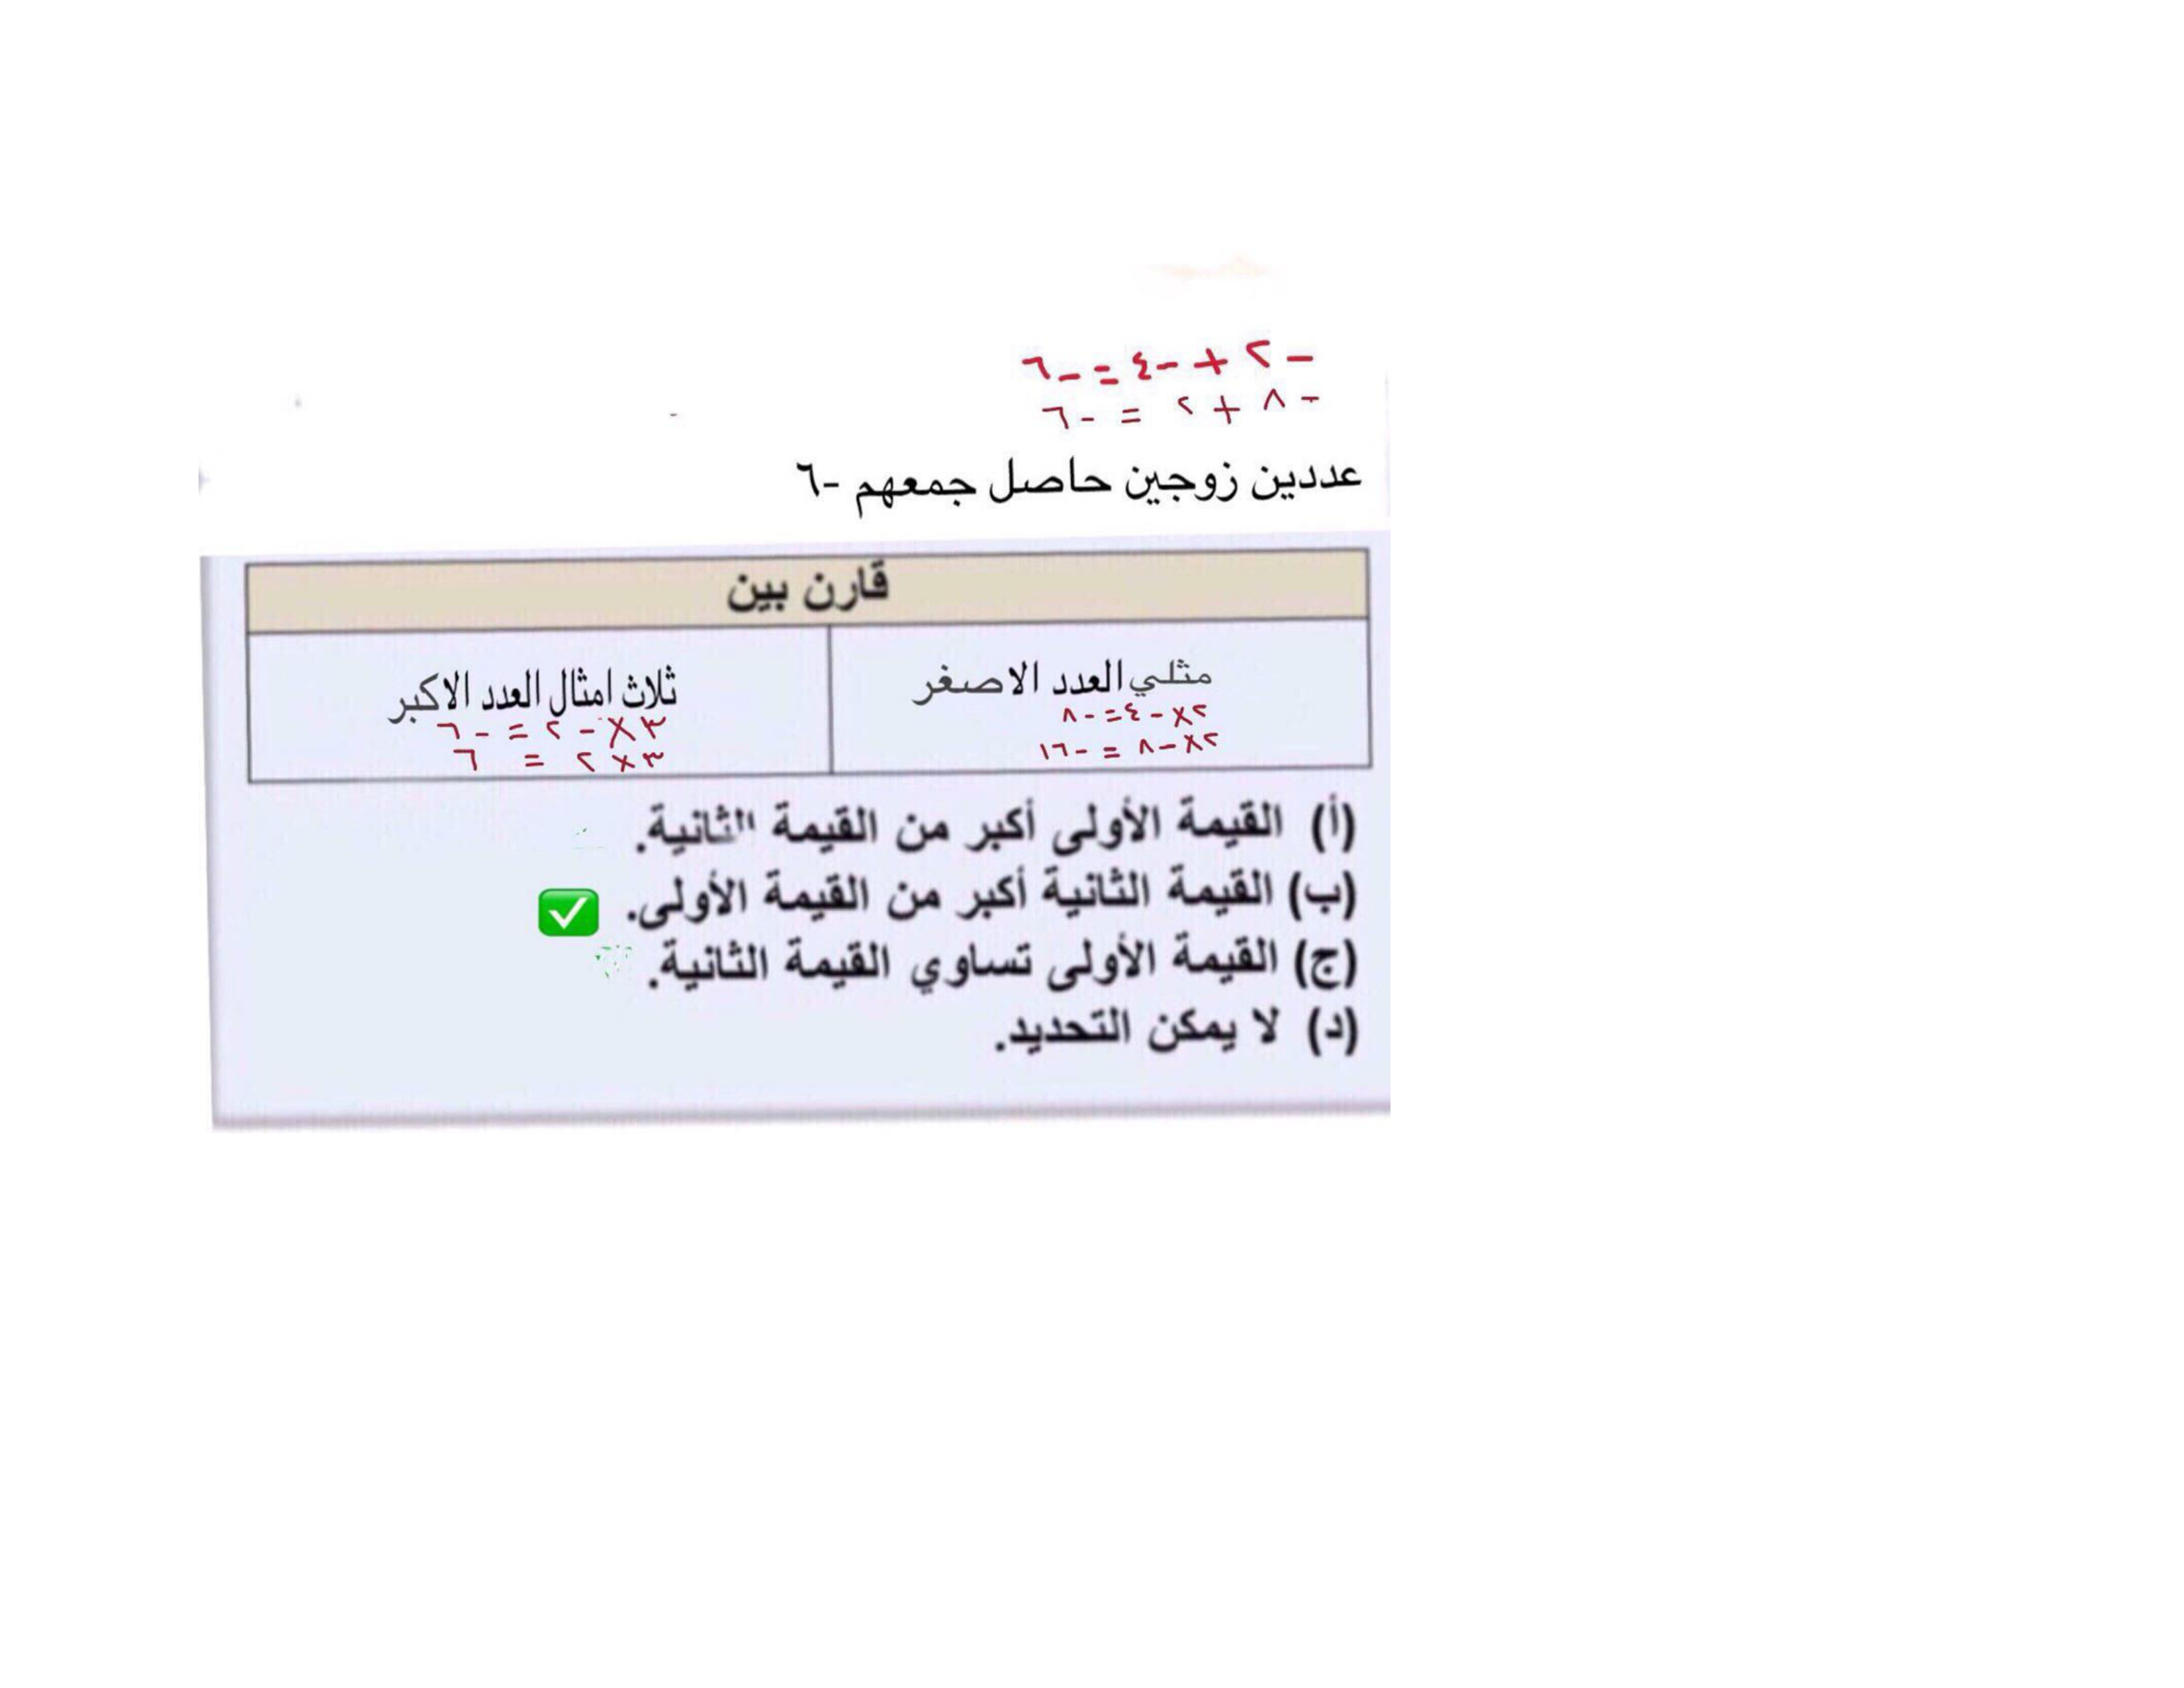 -٢ + -٤ = -٦
-٨ + ٢ = -٦
عددين زوجين حاصل جمعهم -٦
قارن بين
مثلي العدد الاصغر
٢×-٤=-٨
٢×-٨ = -١٦
ثلاث امثال العدد الاكبر
٣×-٢ = -٦
٣×٢ = ٦
(أ) القيمة الأولى أكبر من القيمة الثانية.
(ب) القيمة الثانية أكبر من القيمة الأولى. ✅
(ج) القيمة الأولى تساوي القيمة الثانية.
(د) لا يمكن التحديد.